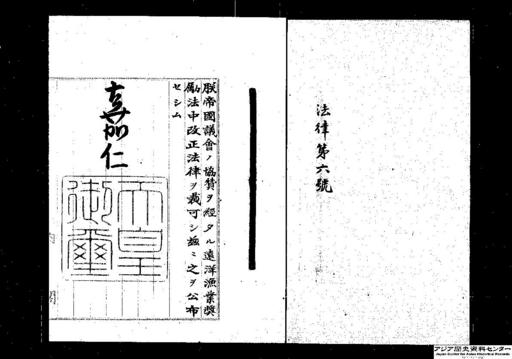 法律第六號
朕帝國議會ノ協賛ヲ經タル遠洋漁業奬
勵法中改正法律ヲ裁可シ茲ニ之ヲ公布
セシム
嘉仁
天皇
御璽
アジア歴史資料センター
Japan Center for Asian Historical Records